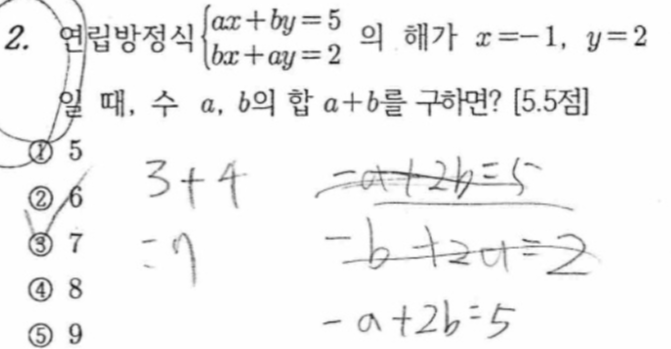 2. 연립방정식 {ax+by=5
bx+ay=2 의 해가 x=-1, y=2
일 때, 수 a, b의 합 a+b를 구하면? [5.5점]
① 5
② 6
③ 7
④ 8
⑤ 9
3+4
=7
-a+2b=5
-b+2a=2
-a+2b=5